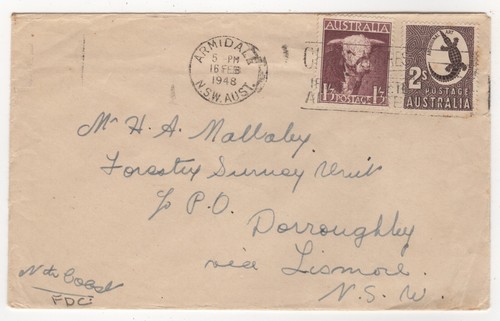 ARMIDALE
5 - PM
16 FEB
1948
N.S.W. AUST.
AUSTRALIA
1/3 POSTAGE 1/3
2s POSTAGE
AUSTRALIA
Mr H. A. Mallaby
Forestry Survey Unit
c/o P.O.
Dorroughby
via Lismore.
N. S. W.
Nth Coast
FDC